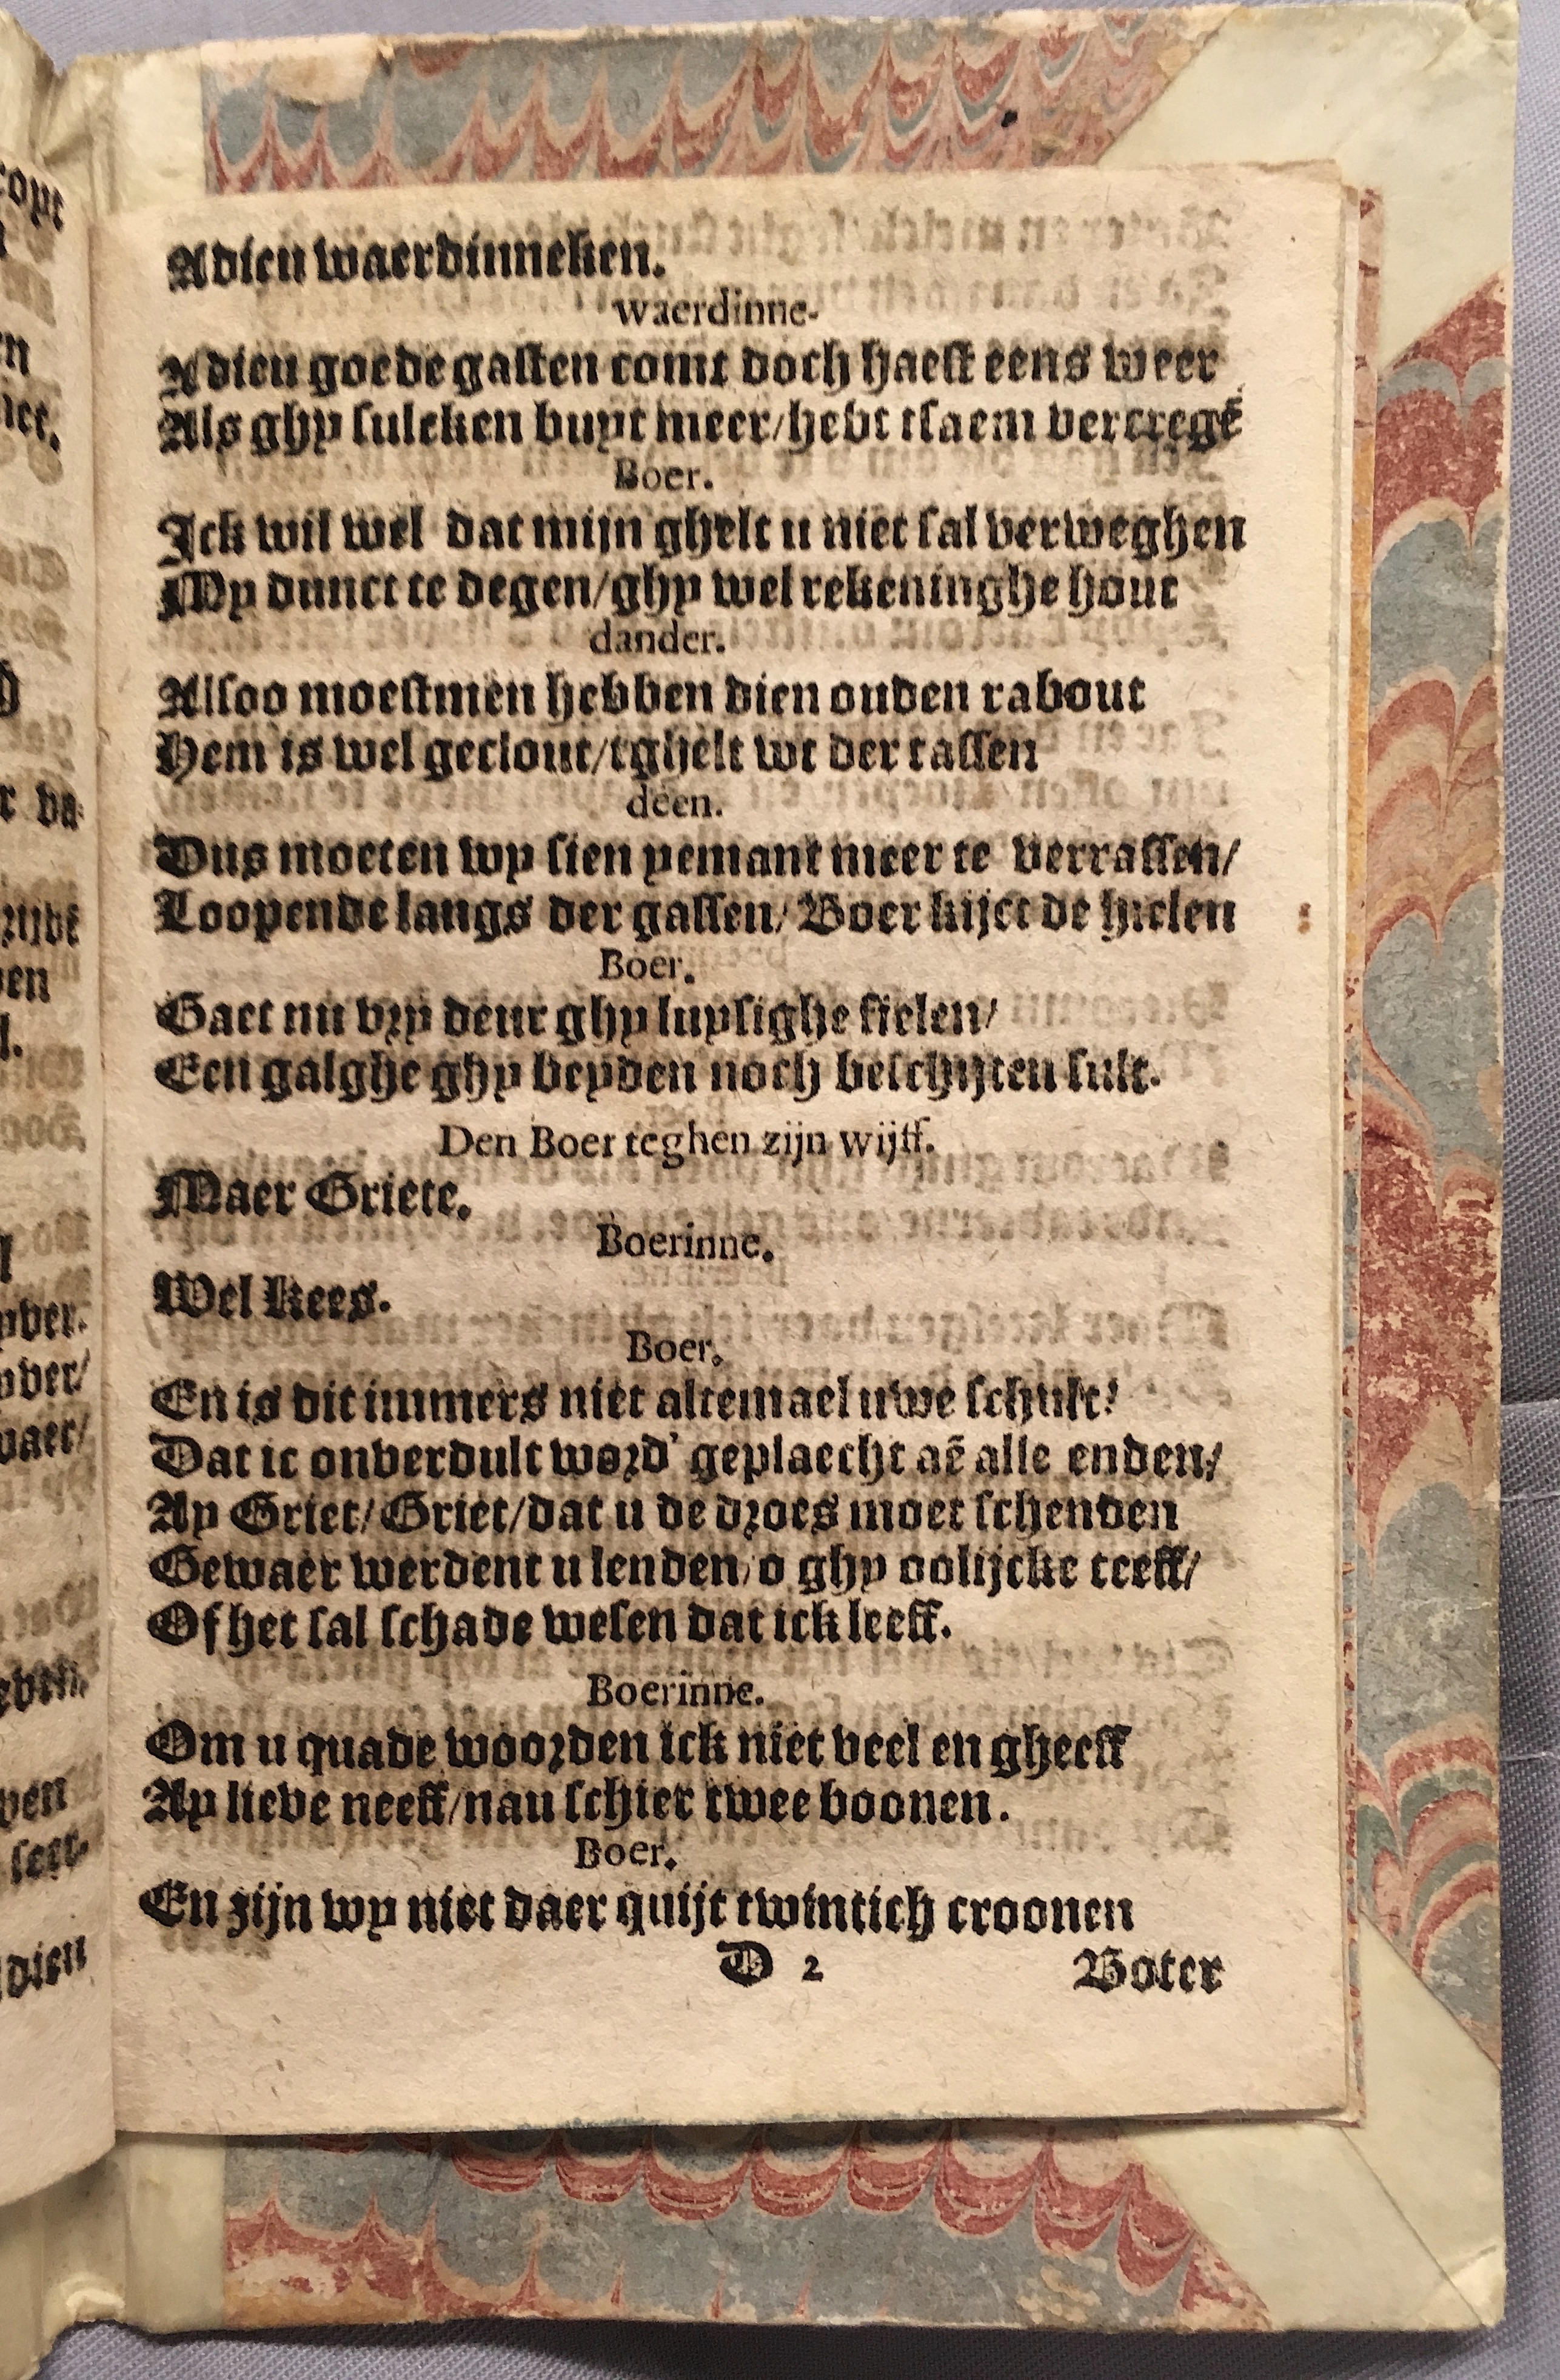 Adieu waerdinneken.
waerdinne.
Adieu goede gasten comt doch haest eens weer
Als ghy sulcken buyt meer/hebt tsaem vercregẽ
Boer.
Ick wil wel dat mijn ghelt u niet sal verweghen
My dunct te degen/ghy wel rekeninghe hout
dander.
Alsoo moestmen hebben dien ouden rabout
Hem is wel geclout/tghelt wt der tassen
deen.
Dus moeten wy sien yemant meer te verrassen/
Loopende langs der gassen/Boer kijct de hielen
Boer.
Gaet nu vry deur ghy luysighe fielen/
Een galghe ghy beyden noch beschijten sult.
Den Boer teghen zijn wijff.
Maer Griete.
Boerinne.
Wel Kees.
Boer.
En is dit immers niet altemael uwe schult!
Dat ic onverdult word' geplaecht aẽ alle enden/
Ay Griet/Griet/dat u de droes moet schenden
Gewaer werdent u lenden/o ghy oolijcke teeff/
Of het sal schade wesen dat ick leeff.
Boerinne.
Om u quade woorden ick niet veel en gheeff
Ay lieve neeff/nau schier twee boonen.
Boer.
En zijn wy niet daer quijt twintich croonen
D 2 Boter